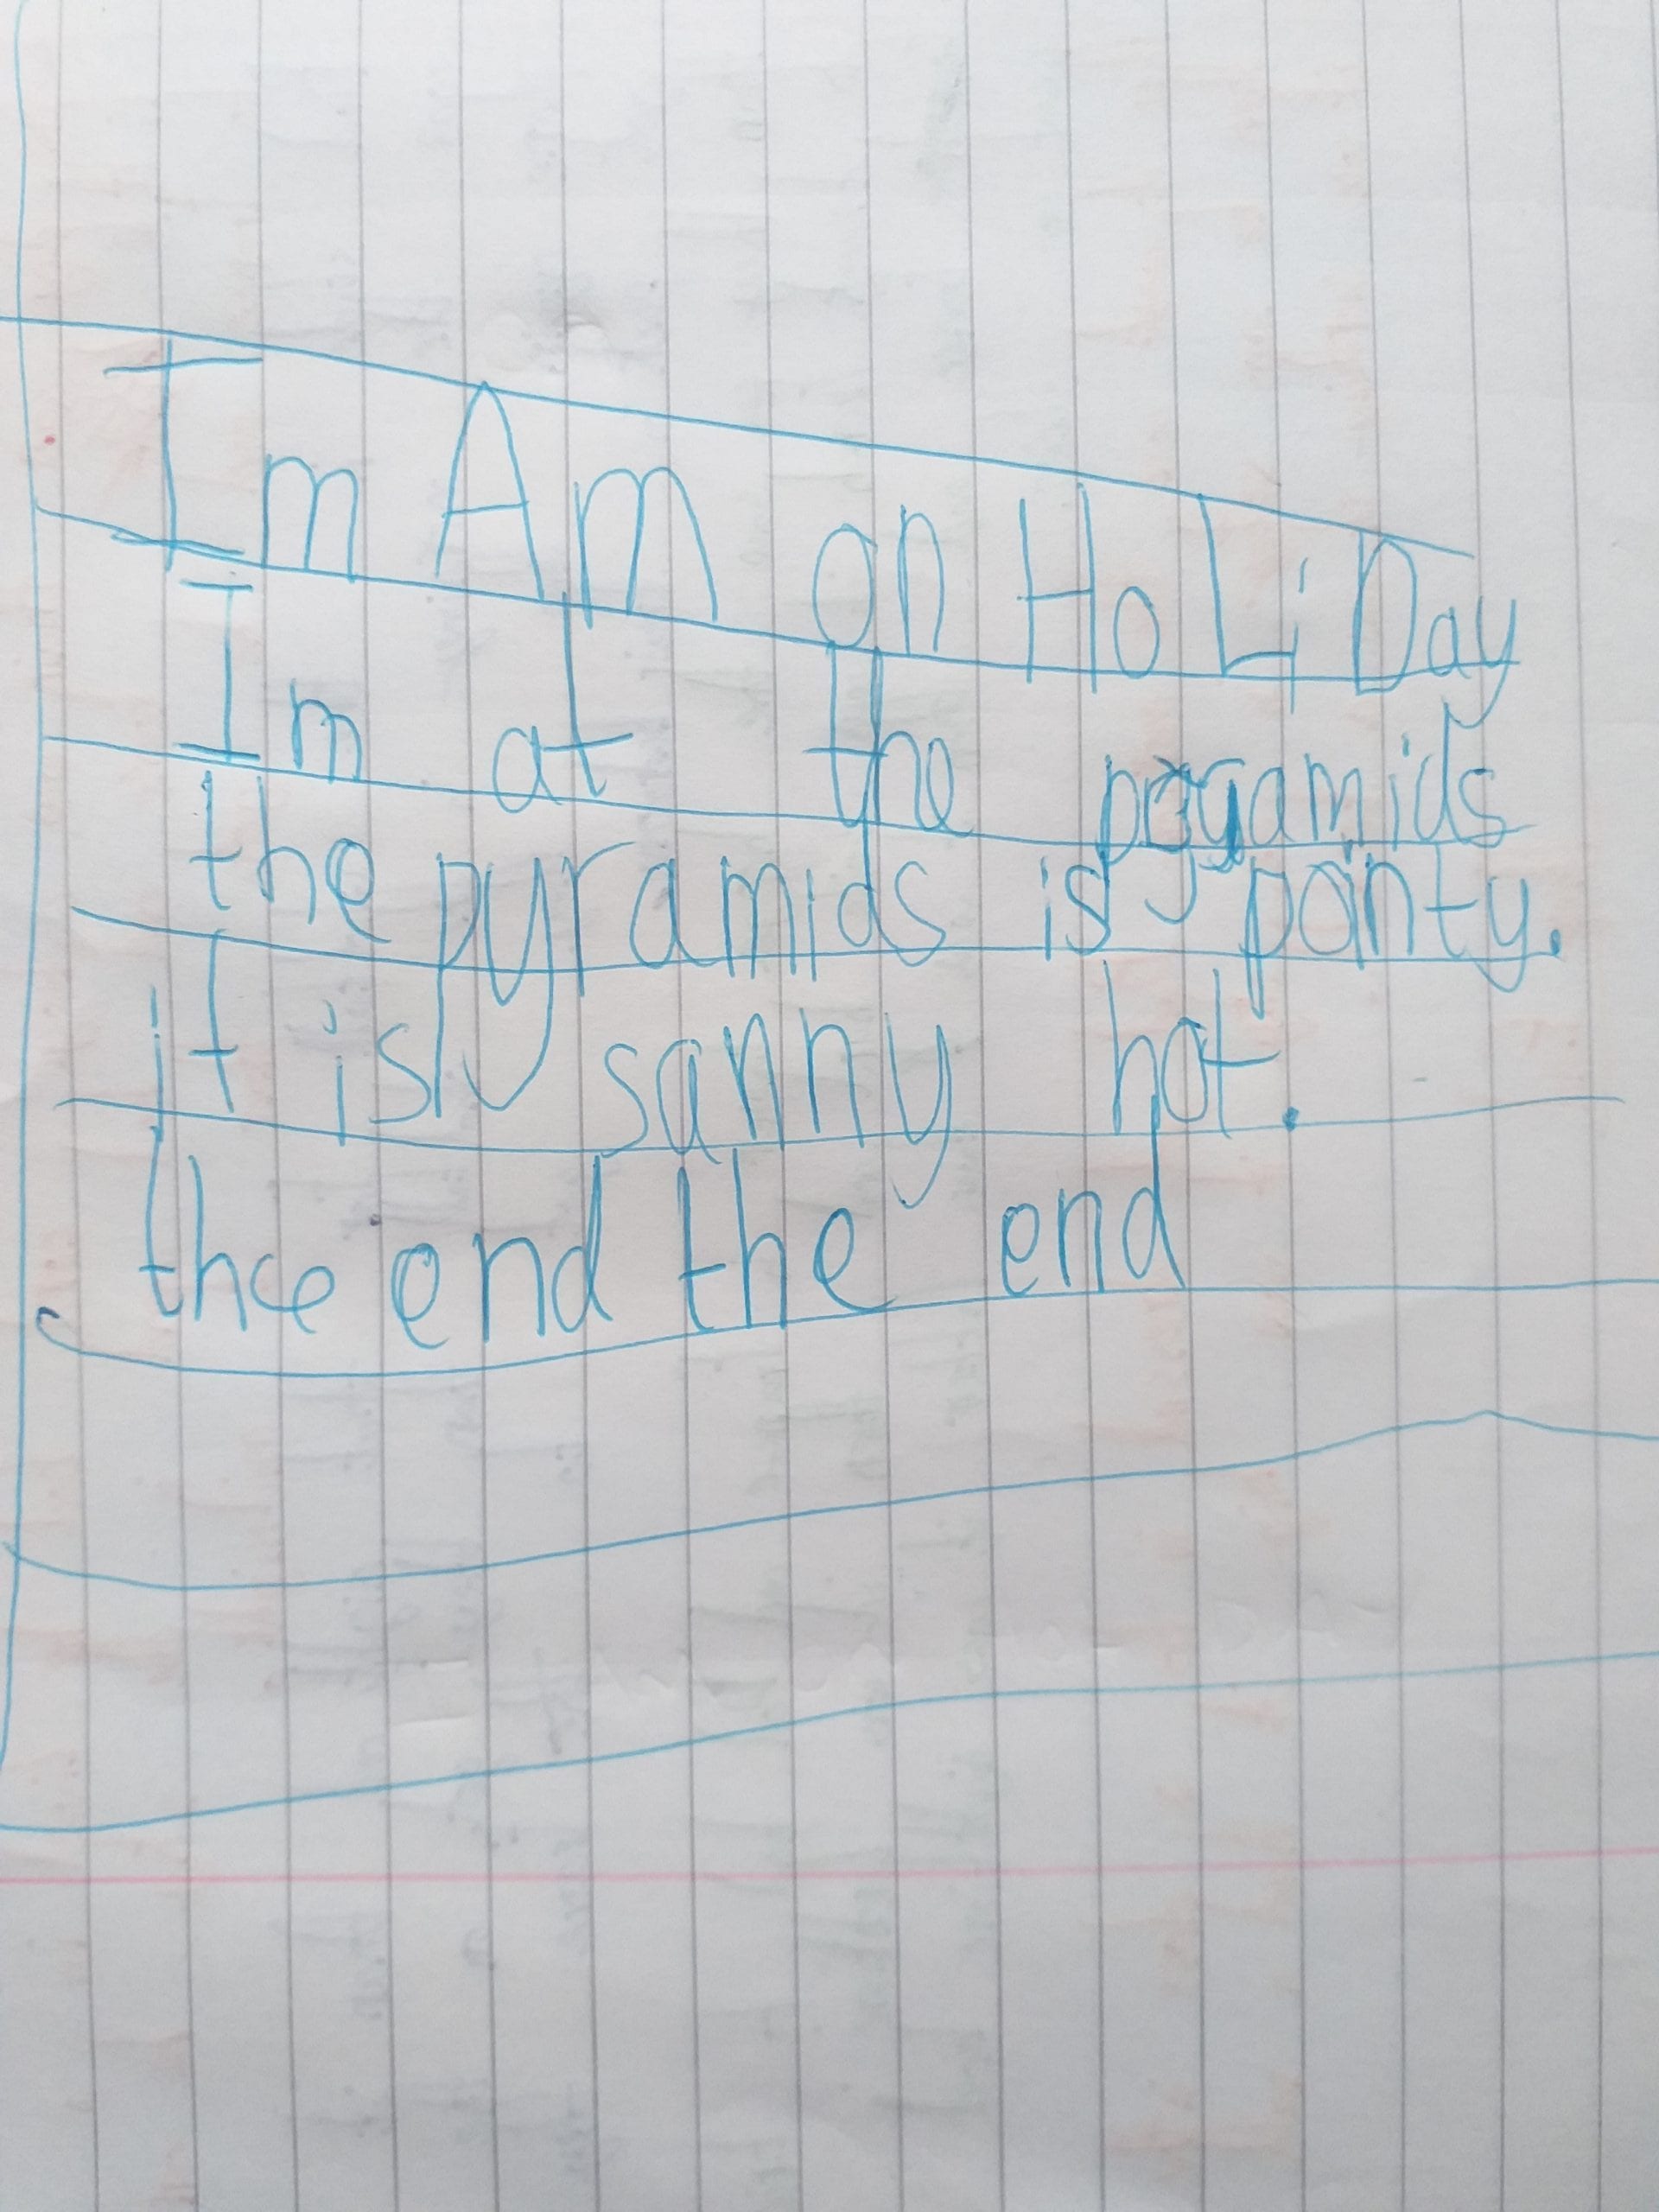 Im Am on HoLiDay
Im at the pyramids
the pyramids is pointy.
it is sanny hot.
the end the end